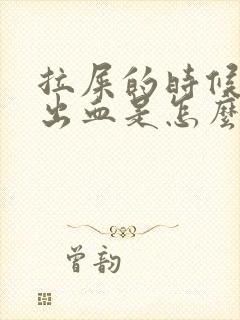 拉屎的時候
出血是怎麼
曾韵